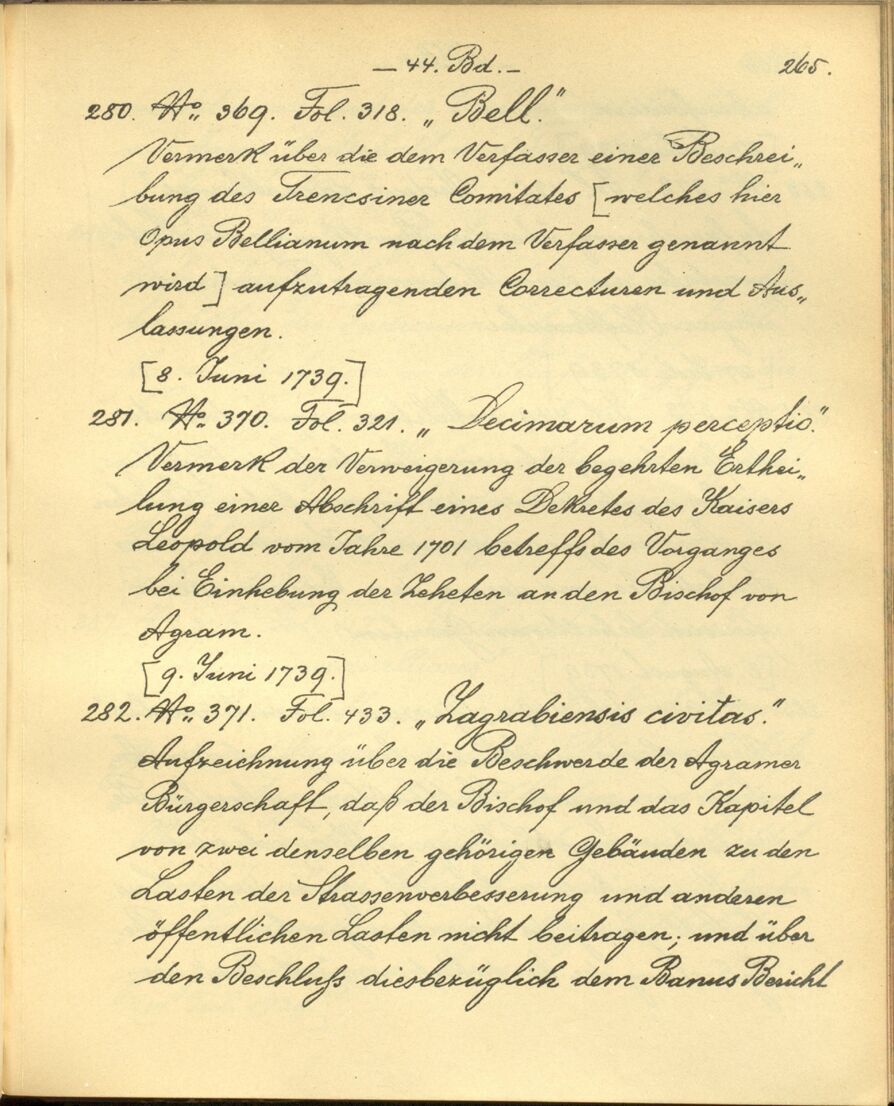 — 44. Bd. –
265.
280. No. 369. Fol. 318. „Bell."
Vermerk über die dem Verfasser einer Beschrei„
bung des Trencsiner Comitates [welches hier
Opus Bellianum nach dem Verfasser genannt
wird] aufzutragenden Correcturen und Aus„
lassungen.
[8. Juni 1739.]
281. No. 370. Fol. 321. „Decimarum perceptio."
Vermerk der Verweigerung der begehrten Erthei„
lung einer Abschrift eines Dekretes des Kaisers
Leopold vom Jahre 1701 betreffs des Vorganges
bei Einhebung der Zeheten an den Bischof von
Agram.
[9. Juni 1739.]
282. No. 371. Fol. 433. „Zagrabiensis civitas."
Aufzeichnung über die Beschwerde der Agramer
Bürgerschaft, daß der Bischof und das Kapitel
von zwei denselben gehörigen Gebäuden zu den
Lasten der Strassenverbesserung und anderen
öffentlichen Lasten nicht beitragen; und über
den Beschluß diesbezüglich dem Banus Bericht